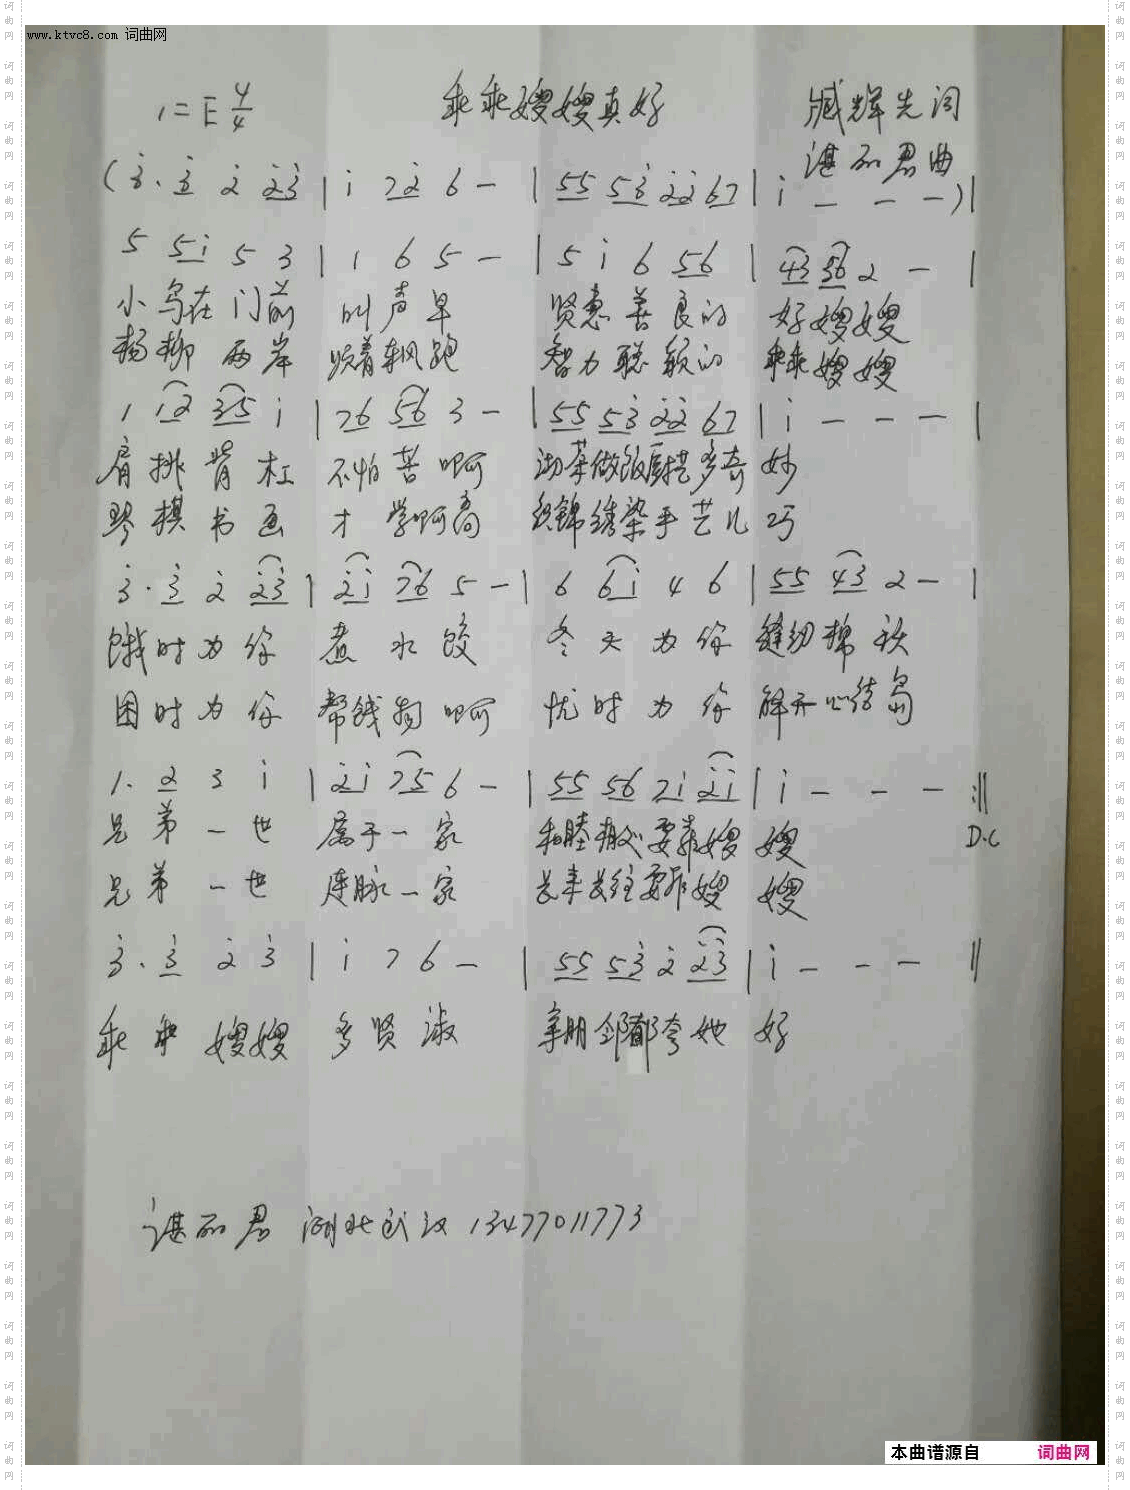 www.ktvc8.com 词曲网
1=E 4/4 乖乖嫂嫂真好 臧辉先词
谌丽君曲
(3̇. 3̇ 2̇ 2̇3̇ | i 72̇ 6 — | 55 53̇ 2̇2̇ 67 | i — — —) |
5 5i 5 3 | 1 6 5 — | 5 i 6 56 | 43 56 2 — |
小鸟在门前 叫声早 贤惠善良的 好嫂嫂
杨柳两岸 智力聪颖的 乖乖嫂嫂
1 12 35 i | 76 56 3 — | 55 53̇ 2̇2̇ 67 | i — — — |
肩挑背杠 不怕苦啊 做饭厨艺多奇妙
琴棋书画 才学啊高 织锦绣染手艺儿巧
3̇. 3̇ 2̇ 2̇3̇ | 2̇i 76 5 — | 6 6i 4 6 | 55 43 2 — |
饿时为你 煮水饺 冬天为你 缝纫棉袄
困时为你 帮钱物啊 忧时为你 解开心结
1. 2 3 i | 2̇i 75 6 — | 55 56 7i 2̇i | i — — — :||
兄弟一世 属于一家 和睦相处要靠嫂嫂
D.C
兄弟一世 连脉一家 要靠嫂嫂
3̇. 3̇ 2̇ 3̇ | i 7 6 — | 55 53̇ 2̇ 2̇3̇ | i — — — ||
乖乖嫂嫂 多贤淑 亲朋邻都夸她好
谌丽君 湖北武汉 13477011773
本曲谱源自 词曲网